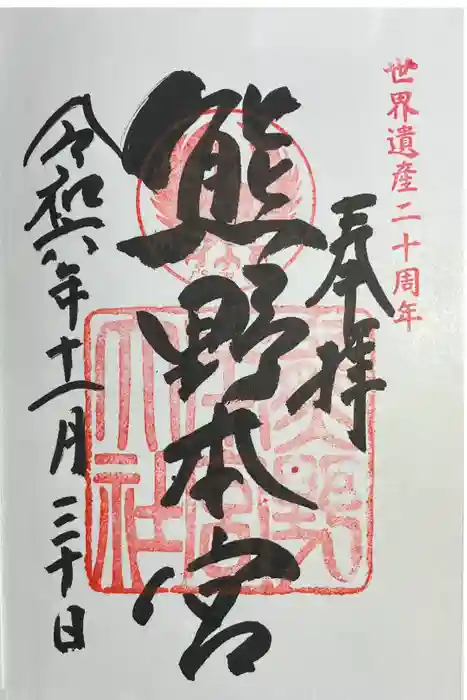 世界遺産二十周年
奉拝
熊野本宮
熊野
本宮
大社
令和六年十一月三十日